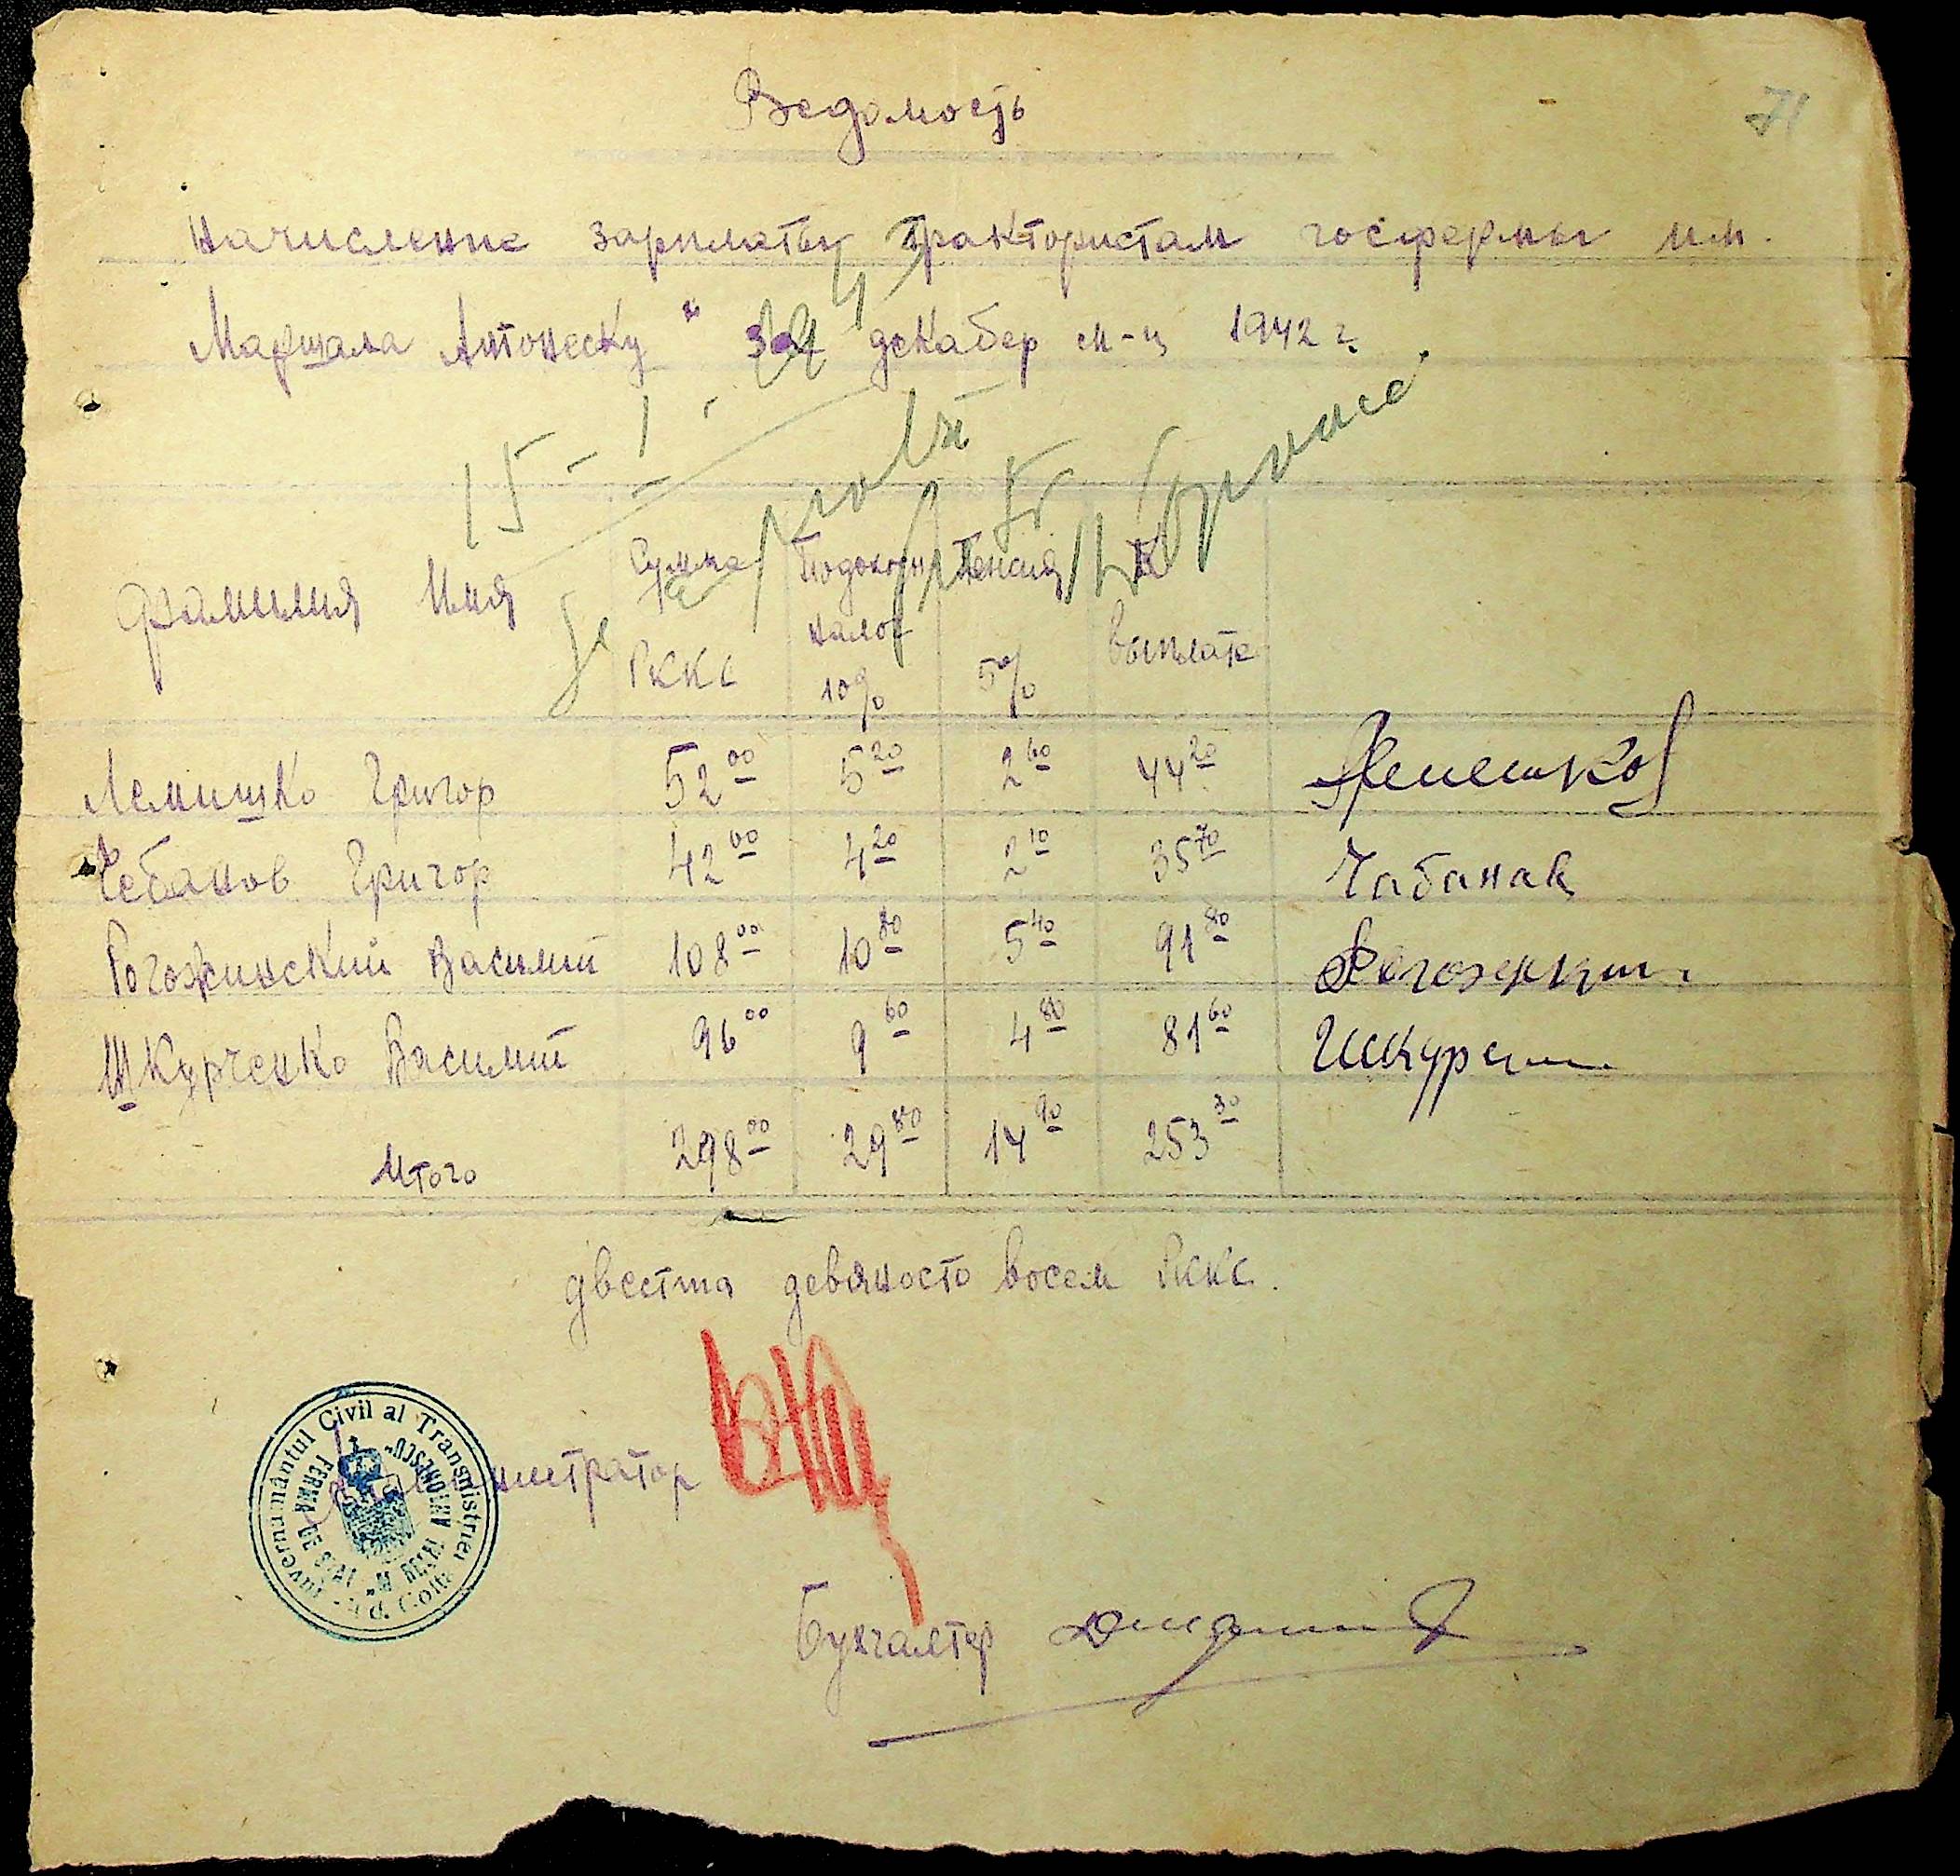 71
Ведомость
Начисление зарплаты трактористам госфермы им.
Маршала Антонеску" за декабер м-ц 1942 г.
15-I-
Se
Фамилия Имя Сумма РККС Подоходн налог 10% Пенсия 5% К выплате
Лемишко Григор 52 00 5 20 2 60 44 20 Лемешко
Чебанов Григор 42 00 4 20 2 10 35 70 Чабанов
Рогожинский Василий 108 00 10 80 5 40 91 80
Шкурченко Василий 96 00 9 60 4 80 81 60
Итого 298 00 29 80 14 90 253 30
двести девяносто восем РККС.
Guvernământul Civil al Transnistriei
FERMA DE STAT "M-REȘAL ANTONESCU"
Администратор
Бухгалтер